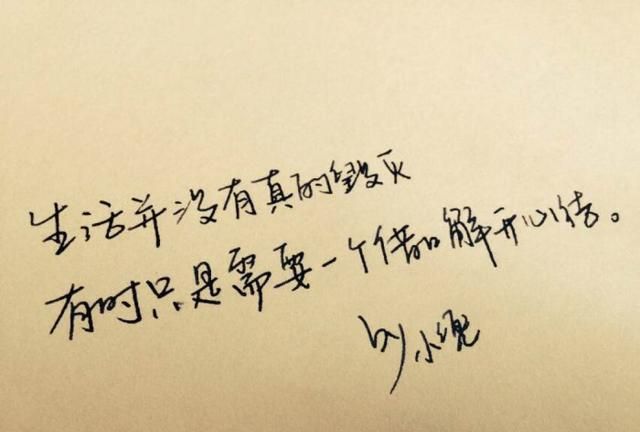 生活并没有真的毁灭
有时只是需要一个借口解开心结。
by 小